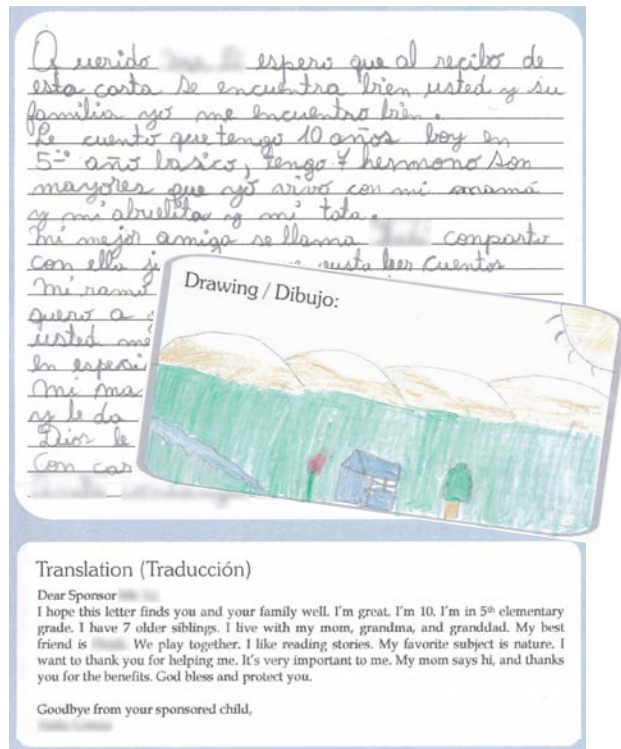 Querido espero que al recibo de
esta carta se encuentra bien usted y su
familia yo me encuentro bien.
Le cuento que tengo 10 años boy en
5º año basico, tengo 7 hermono son
mayores que yo vivo con mi mamá
y mi abuelita y mi tata.
mi mejor amiga se llama conparto
con ella gusta leer cuentos
mi ramo
quero a
usted me
en especi
mi ma
y le da
Dios le
Con cas
Drawing / Dibujo:
Translation (Traducción)
Dear Sponsor
I hope this letter finds you and your family well. I'm great. I'm 10. I'm in 5th elementary
grade. I have 7 older siblings. I live with my mom, grandma, and granddad. My best
friend is We play together. I like reading stories. My favorite subject is nature. I
want to thank you for helping me. It's very important to me. My mom says hi, and thanks
you for the benefits. God bless and protect you.
Goodbye from your sponsored child,